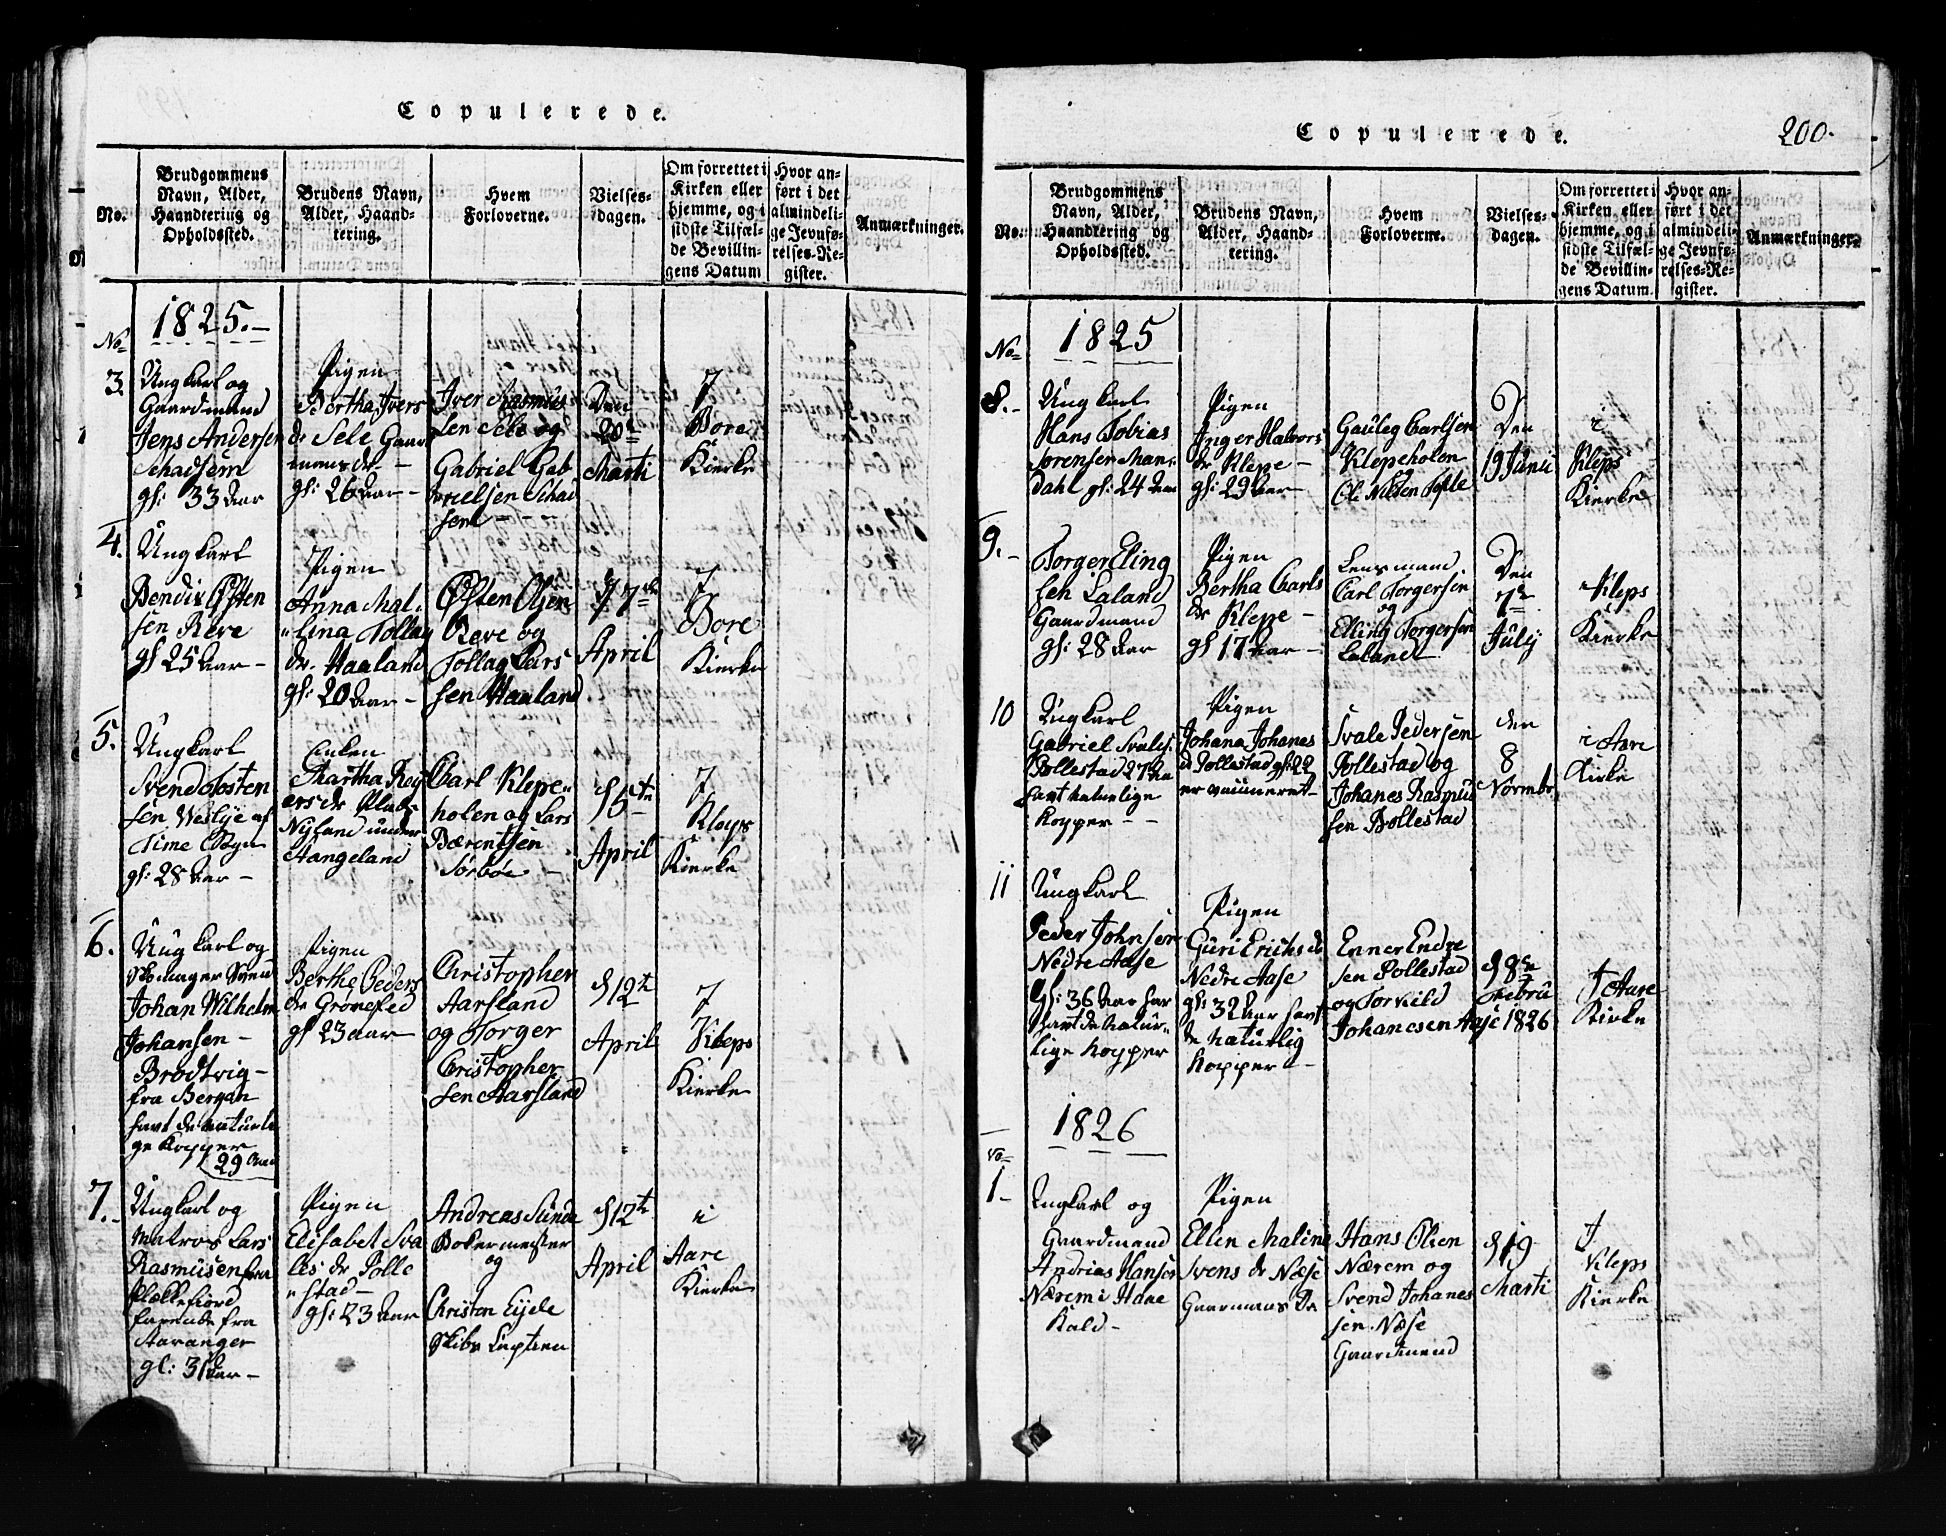 Copulerede.
No.
Brudgommens
Navn, Alder,
Haandtering og
Opholdssted.
Brudens Navn,
Alder, Haand-
tering.
Hvem
Forloverne.
Vielses-
dagen.
Om forrettet i
Kirken eller
hjemme, og i
sidste Tilfæl-
de Bevillin-
gens Datum
Hvor an-
ført i det
almindeli-
ge Jevnfø-
relses-Re-
gister.
Anmærkninger.
1825.-
No
3.
Ungkarl og
Gaardmand
Jens Andersen
Schadsem
gl: 33 Aar
Pigen
Bertha Ivers
dr Sele Gaar
mans dr -
gl: 26 Aar -
Iver Rasmus
sen Sele og
Gabriel Gab
rielsen Schad
sem
Den
20de
Marti
I
Bore
Kierke
4.
Ungkarl
Bendix Østen
sen Reve
gl 25 Aar -
Pigen
Anna Mal-
lina Tollag
dr. Haaland
gl: 20 Aar -
Østen Olsen
Reve og
Tollag Lars
sen Haaland
d 7de
April
I
Bore
Kierke
5.
Ungkarl
Svend Tosten
sen Weslye af
Time Sogn
gl: 28 Aar -
Enken
Martha Rey
ers dr
Nyland under
Stangeland
Carl Klepe-
holen og Lars
Bærentsen
Sørbøe -
d 5te
April
I
Kleps
Kierke
6.
Ungkarl og
Skomager Svend
Johan Wilhelm
Johansen -
Brodtvig -
fra Bergen
havt de naturli
ge kopper
29 Aar
Pigen
Berthe Peders
dr Gronested
gl 23 aar
Christopher
Aarsland
og Torger
Cristopher
sen Aarsland
d 12t
April
I
Kleps
Kierke
7.
Ungkarl og
Matros Lars
Rasmusen fra
Flekkefiord
farende fra
Stavanger
gl: 31 Aar -
Pigen
Elisabet Sva
les dr Polle
stad -
gl: 23 Aar
Andreas Sunde
Bokermester
og
Christen Eyele
Skibs Captien
d 12t
April
i
Aare
Kierke
Copulerede.
200.
No.
Brudgommens
Navn, Alder,
Haandtering og
Opholdssted.
Brudens Navn,
Alder, Haand-
tering.
Hvem
Forloverne.
Vielses-
dagen.
Om forrettet i
Kirken eller
hjemme, og i
sidste Tilfæl-
de Bevillin-
gens Datum.
Hvor an-
ført i det
almindeli-
ge Jevnfø-
relses-Re-
gister.
Anmærkninger.
1825
No
8.-
Ungkarl
Hans Tobias
Sørensen Man-
dahl gl: 24 Aar
Pigen
Inger Halvors
dr Klepe -
gl: 29 Aar
Gauleg Carlsen
Klepeholen
Ole Nilsen
Den
19 Junii
i
Kleps
Kierke
9.-
Torger Eling
sen Laland
Gaardmand
gl: 28 Aar
Pigen
Bertha Carls
dr Klepe -
gl 17 Aar -
Lensmand
Carl Torgersen
og
Elling Torgersen
Laland
Den
7de
July
i Kleps
Kierke
10
Ungkarl
Gabriel Svales.
Pollestad 27 Aar
havt naturlige
kopper - -
Pigen
Johana Johanes
dr Pollestad gl: 22
er vacineret -
Svale Pedersen
Pollestad og
Johanes Rasmus
sen Pollestad
den
8
Novmbr
i Aare
Kirke
11
Ungkarl
Peder Johnsen
Nedre Aase
gl: 36 Aar har
havt de natur-
lige kopper
Pigen
Guri Erichs dr
Nedre Aase
gl: 32 Aar havt
de naturlig
kopper -
Enner Endre
sen Pollestad
og Torkild
Johanesen Aase
d 8de
Febru
1826
I Aare
Kirke
1826
No
1-
Ungkarl og
Gaardmand
Andrias Hansen
Nærem i Haae
Kald -
Pigen
Ellen Maline
Svens dr Næse
Gaarmans Dr
Hans Olsen
Nærem og
Svend Johanes
sen Næse
Gaardmend
d 19
Marti
I
Kleps
Kierke